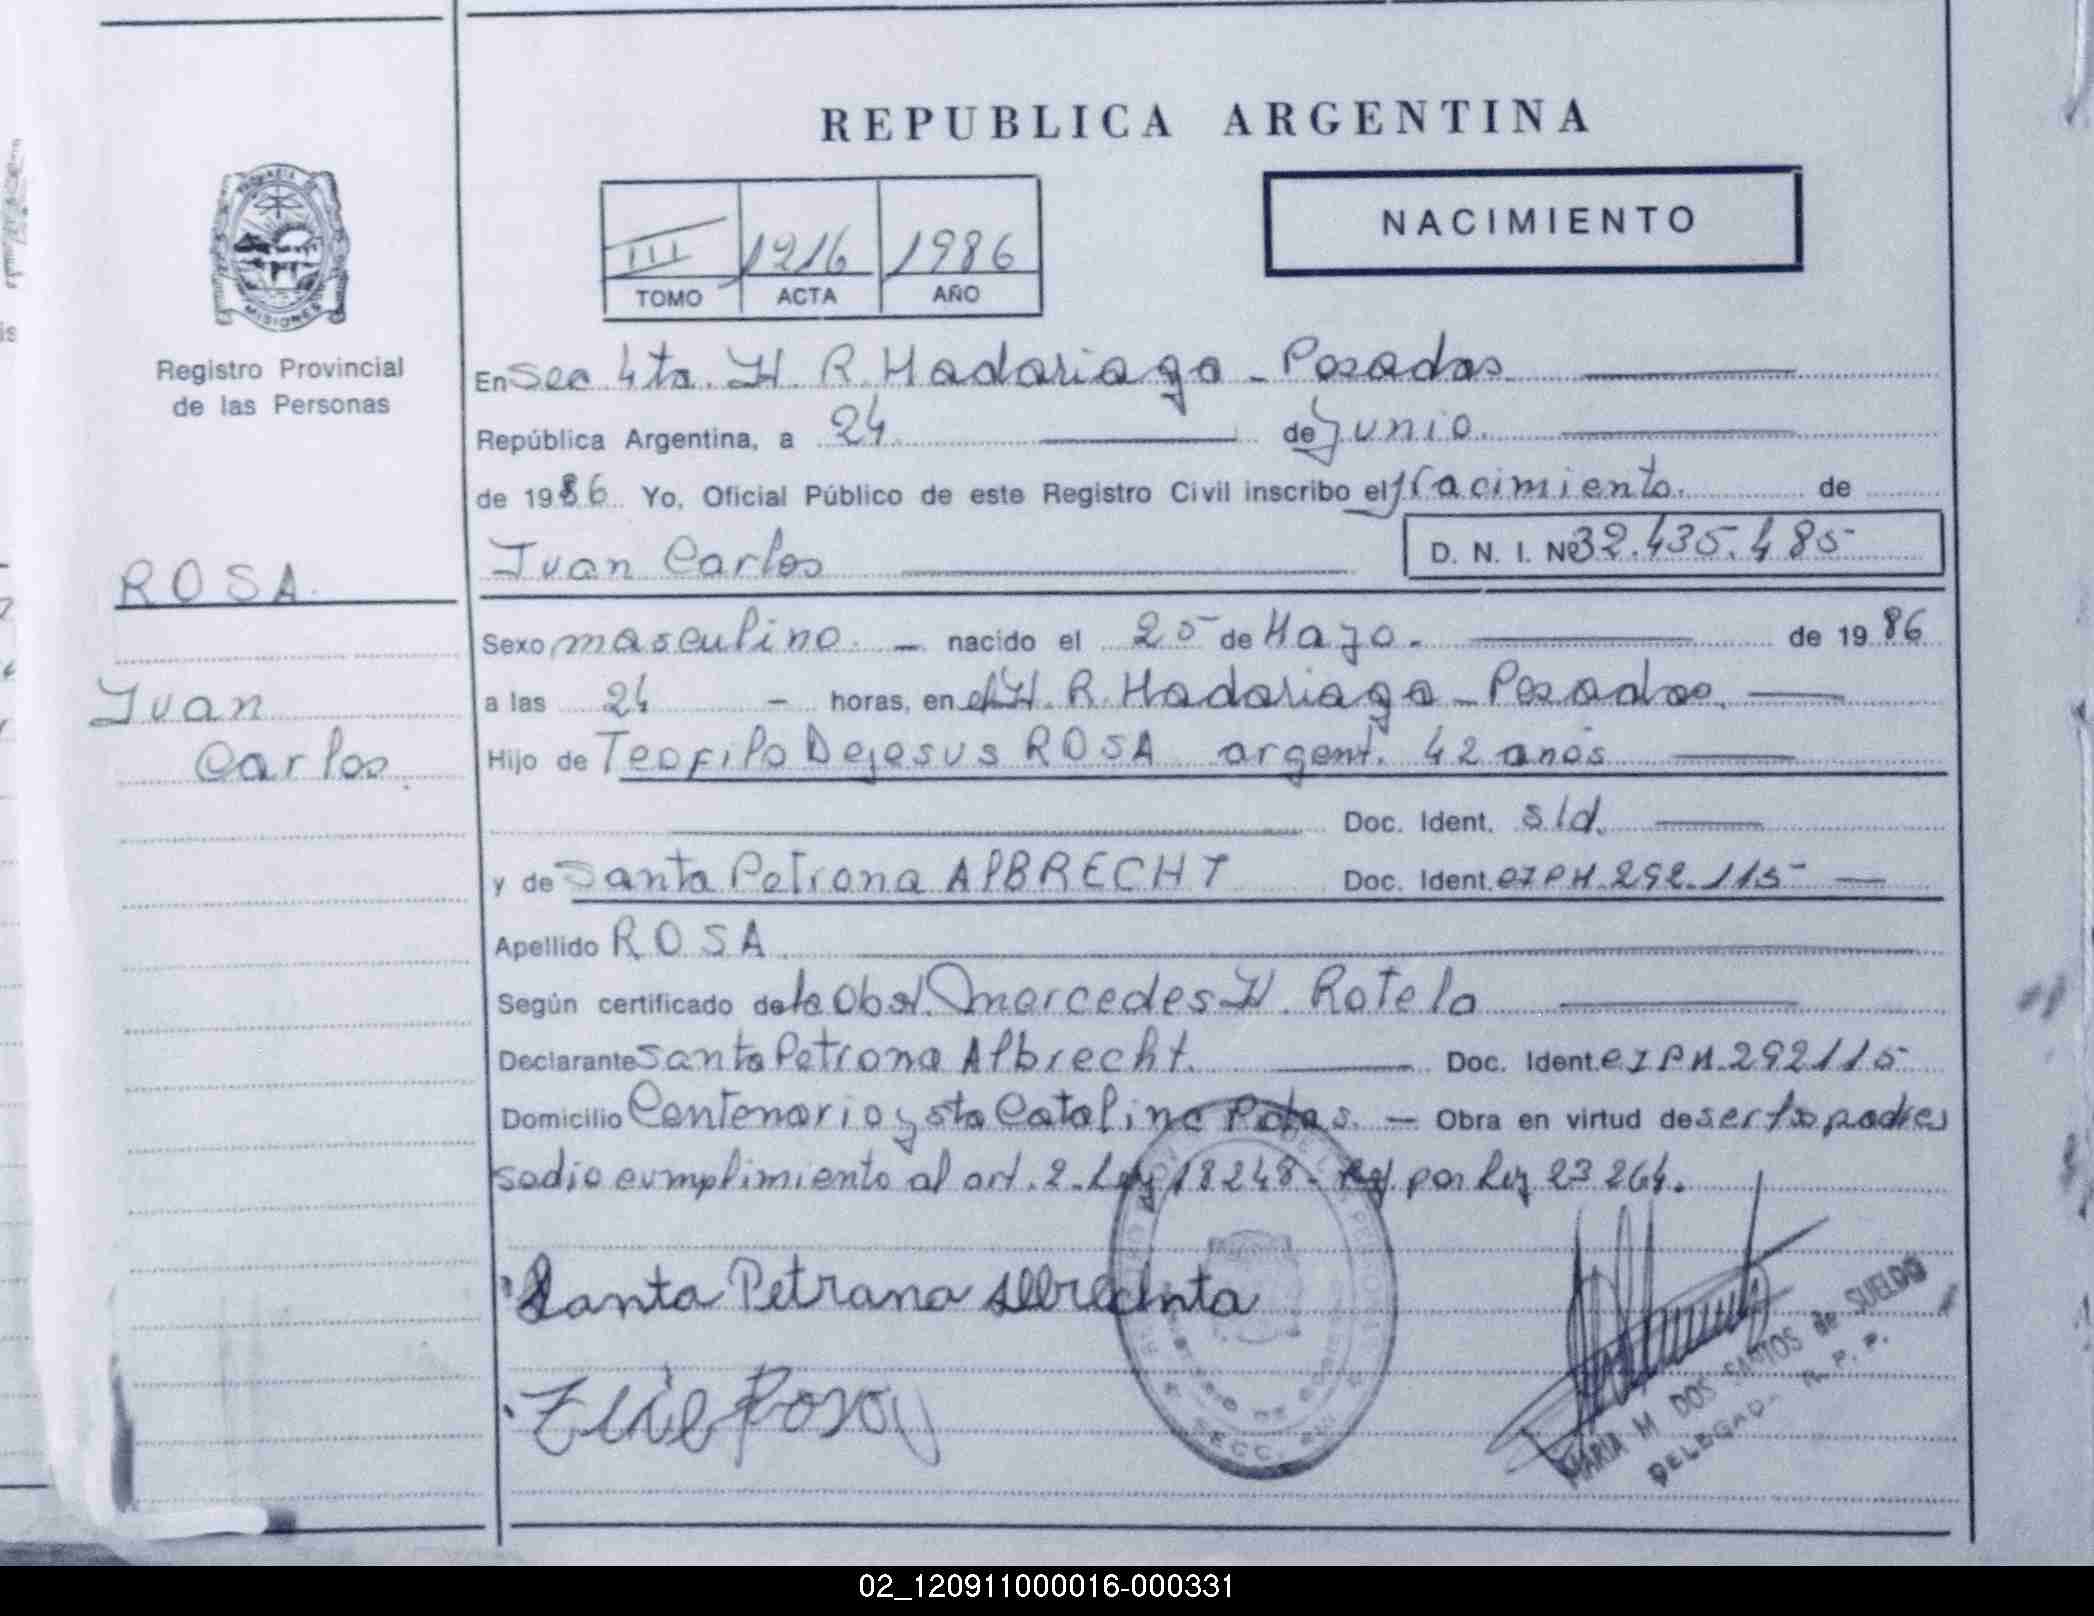 REPUBLICA ARGENTINA
NACIMIENTO
III 1216 1986
TOMO ACTA AÑO
PROVINCIA DE
MISIONES
Registro Provincial
de las Personas
ROSA
Juan
Carlos
En Sec 4ta. H. R. Madariaga - Posadas
República Argentina, a 24 de Junio.
de 1986 Yo, Oficial Público de este Registro Civil inscribo el Nacimiento. de
Juan Carlos D. N. I. Nº 32.435.485
Sexo masculino. - nacido el 25 de Mayo. de 1986
a las 24 - horas, en el H. R. Madariaga - Posadas.
Hijo de Teofilo Dejesus ROSA argent. 42 anos
Doc. Ident. s/d.
y de Santa Petrona AlBRECHT Doc. Ident. CIPM 292.115 -
Apellido ROSA
Según certificado de la Obst. Mercedes H. Rotela
Declarante Santa Petrona Albrecht. Doc. Ident. CIPM. 292115
Domicilio Centenario y sta Catalina Pdas. - Obra en virtud de ser los padres
sedio cumplimiento al art. 2. Ley 18248 - por Ley 23264.
Santa Petrana
MARIA M DOS SANTOS de SUELDO
DELEGADA R. P. P.
SECC.
02_120911000016-000331